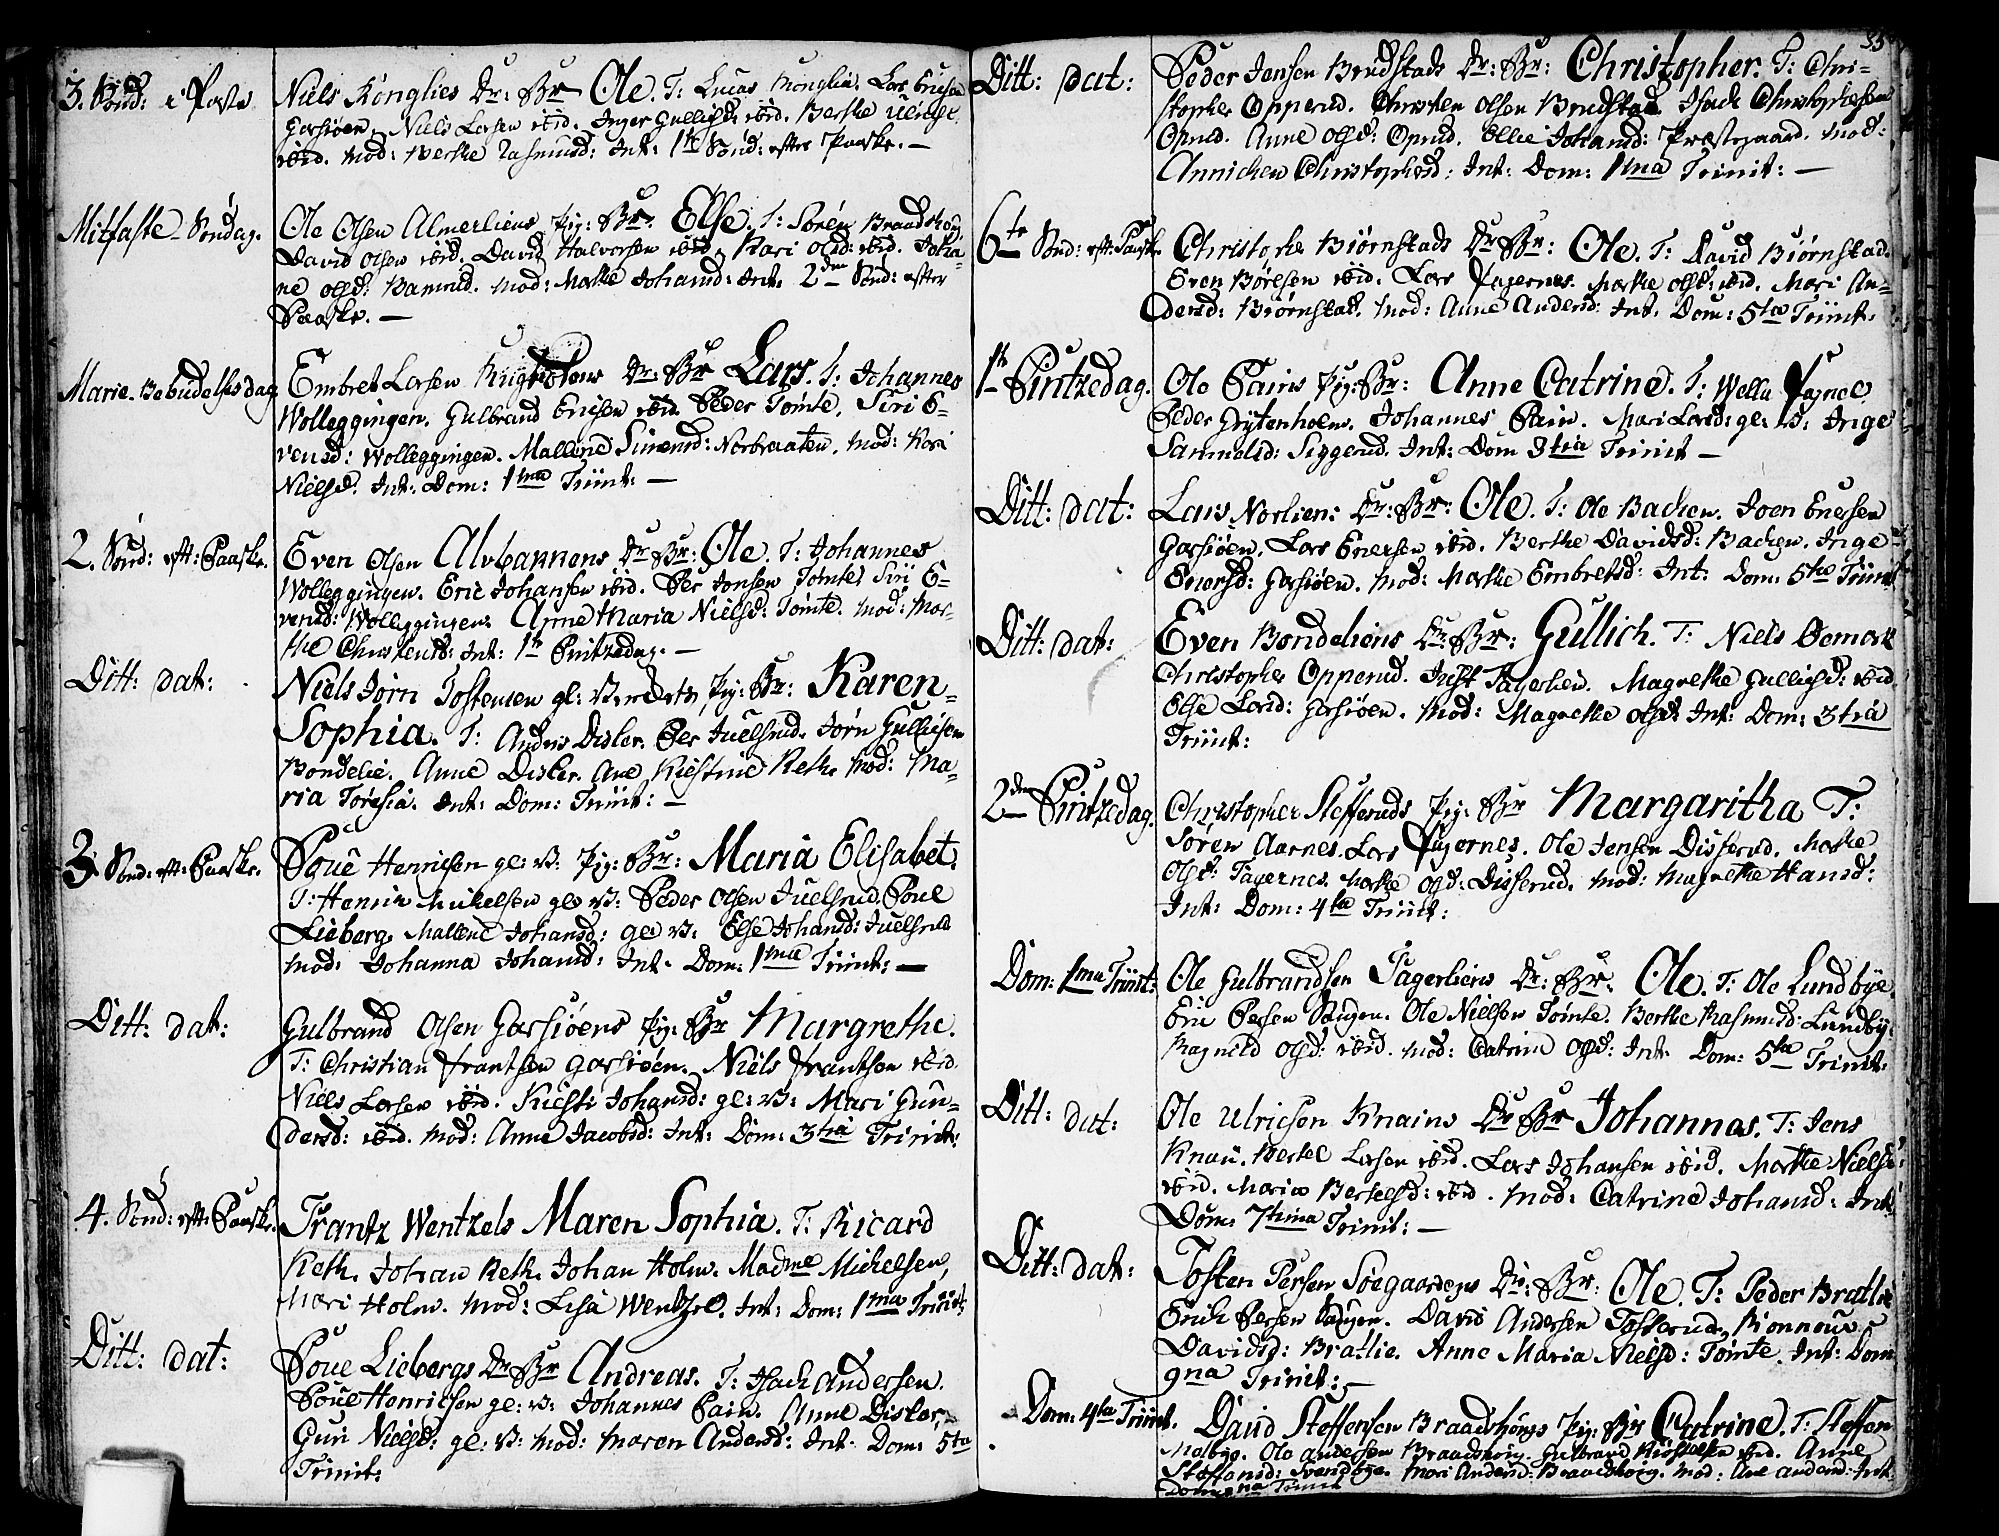 3. Sönd: i Faste
Niels Könglies Dr: Br Ole. T: Lucas Könglie. Lars Ericsen
Garsiöen. Niels Larsen ibid. Inger Gulligsd: ibid. Berthe
ibid. Mod: Berthe Rasmusd: Int: 1te Sönd: efter Paaske. —
Mitfaste-Söndag.
Ole Olsen Almerliens Pig: Br: Else. T: Sören Braadshög
David Olsen ibid. David Halvorsen ibid. Kari Olsd: ibid. Joha-
ne Olsd: Bamrud. Mod: Marthe Johansd: Int. 2den Sönd: efter
Paaske. —
Marie Bebudelses dag
Embret Larsen Dr: Br Lars. T: Johannes
Wolleggingen. Gulbrand Ericsen ibid. Peder Tömte. Siri E-
vensd: Wolleggingen. Mallene Simensd: Norbraaten. Mod: Kari
Nielsd. Int: Dom: 1ma Trinit: —
2. Sönd: eft: Paaske.
Even Olsen Dr: Br: Ole. T: Johannes
Wolleggingen. Eric Johansen ibid. Per Jensen Tömte. Siri E-
vensd: Wolleggingen. Anne Maria Nielsd: Tömte. Mod: Mar-
the Christensd: Int: 1te Pintzedag. —
Ditt: dat:
Niels Jörn Jostensen gl: Pig: Br: Karen-
Sophia. T: Anders Disler. Per Juelsrud. Jörn Gullicsen
Bondelie. Anne Disler. Ane Kiestine Reth. Mod: Ma-
ria Toresia. Int: Dom: Trinit: —
3. Sönd: eft: Paaske.
Poue Henricsen gl: V: Pig: Br: Maria Elisabet.
T: Henric Mickelsen gl: V: Peder Olsen Juelsrud. Poue
Lieberg. Mallene Johansd: gl: V: Else Johansd: Juelsrud
Mod: Johanna Johansd: Int. Dom: 1ma Trinit: —
Ditt: dat:
Gulbrand Olsen Garsiöens Pig: Br Margrethe.
T: Christian Frantsen Garsiöen. Niels Frantsen ibid.
Niels Larsen ibid. Kiesti Johansd: gl: V: Mari Gun-
dersd: ibid. Mod: Anne Jacobsd: Int: Dom: 3tia Trinit:
4. Sönd: eft: Paaske.
Frantz Wentzels Maren Sophia. T: Ricard
Reth. Johan Reth. Johan Holm. Madme Mickelsen,
Mari Holm. Mod: Lisa Wentzel. Int: Dom: 1ma Trinit:
Ditt: dat:
Poue Liebergs Dr Br Andreas. T: Isach Andersen.
Poue Henricsen gl: V: Johannes Pain. Anne Disler,
Guri Nielsd: gl: V: Mod: Maren Andersd: Int: Dom: 5ta
Trinit:
35
Ditt: dat:
Peder Jensen Brudstads Dr: Br: Christopher. T: Chri-
stopher Opperud. Christen Olsen Brudstad. Isach Christophersen
Oprud. Anne Olsd: Oprud. Ellie Johansd: Præstegaard. Mod:
Annichen Christophersd: Int: Dom: 1ma Trinit: —
6te Sönd: eft: Paaske
Christopher Biörnstads Dr Br: Ole. T: David Biörnstad.
Even Börresen ibid. Lars Fagernes. Marthe Olsd: ibid. Mari An-
dersd: Biörnstad. Mod: Anne Andersd: Int. Dom: 5ta Trinit.
1te Pintzedag.
Ole Pains Pig: Br: Anne Catrine. T:
Peder Grytenholm. Johannes Pain. Mari Larsd: gl: V: Inge
Samuelsd: Siggerud. Int: Dom 3tia Trinit —
Ditt: dat:
Lars Norlien: Dr: Br: Ole. T: Ole Bachen. Joen Enersen
Garsiöen. Lars Enersen ibid. Berthe Davidsd: Bachen. Inge-
Enersd: Garsiöen. Mod: Marthe Embretsd: Int: Dom: 5ta Trinit
Ditt: dat:
Even Bondeliens Dr: Br: Gullich. T: Niels
Christopher Opperud. Just Tagerlien. Magrethe Gulligsd: ibid.
Else Larsd: Garsiöen. Mod: Magrethe Olsd: Int: Dom: 3tia
Trinit:
2den Pintzedag.
Christopher Stefferuds Pig: Br Margaritha T:
Sören Aarnes. Lars Fagernes. Ole Jensen Disserud. Marthe
Olsd: Fagernes. Marthe Olsd: Disserud. Mod: Magrethe Hansd:
Int: Dom: 4ta Trinit:
Dom: 1ma Trinit:
Ole Gulbrandsen Tagerliens Dr: Br: Ole. T: Ole Lundbye.
Eric Persen Ole Nielsen Tömte. Berthe Rasmusd: Lundby:
Magnild Olsd: ibid. Mod: Catrine Olsd: Int. Dom: 5ta Trinit:
Ditt: dat:
Ole Ulricsen Knains Dr Br Johannes. T: Jens
Knain. Berthel Larsen ibid. Lars Johansen ibid. Marthe Nielsd:
ibid. Maria Bertelsd: ibid. Mod: Catrine Johansd: Int:
Dom: 7tima Trinit: —
Ditt: dat:
Tosten Persen Söegaardens Dr: Br: Ole. T: Peder Bratlie
Erich Persen David Andersen Tosterud. Rönnoue
Davidsd: Bratlie. Anne Maria Nielsd: Tömte. Int: Dom
9na Trinit: —
Dom: 4ta Trinit.
David Steffensen Braadshöugs Pig: Br Catrine. T: Steffen
Ole Andersen Braadshöug. Gulbrand ibid. Anne
Steffensd: Svendbye. Mari Andersd: Braadshöug. Mod: Ane Andersd: Int.
Dom: 9na Trinit